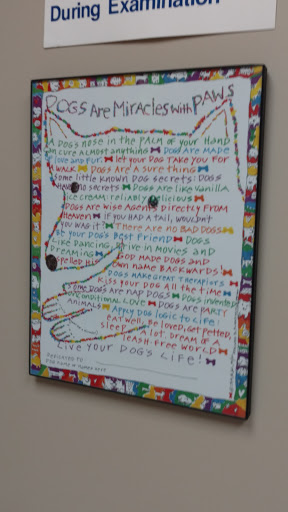 During Examination
DOGS Are Miracles with PAWS
A DOG'S nose in the PALM of your HAND
can cure ALmost anything DOGS ARE MADE
of love and fur. let your DOG TAKE YOU FOR
A WALK DOGS ARE A SURE thing
some little known DOG secrets: DOGS
HAVE no secrets DOGS are like vanilla
ice cream: reliably delicious
DOGS are wise Agents directly from
Heaven if you HAD A TAIL, WOULDN'T
you WAG it? THERE are no BAD DOGS
Be your DOG'S Best Friend DOGS
like DANCING, in movies and
DREAMING GOD MADE DOGS and
spelled His own name BACKWARDS!
DOGS MAKE GREAT THERAPISTS
Kiss your DOG ALL the time
Some DOGS are RAP DOGS DOGS invented
unconditional LOVE DOGS are PARTY
ANIMALS Apply DOG LOGIC to LIFE:
eat well, Be loved, get petted,
sleep a lot, DREAM of a
LEASH-FREE WORLD
LIVE YOUR DOG'S LIFE!
DEDICATED TO